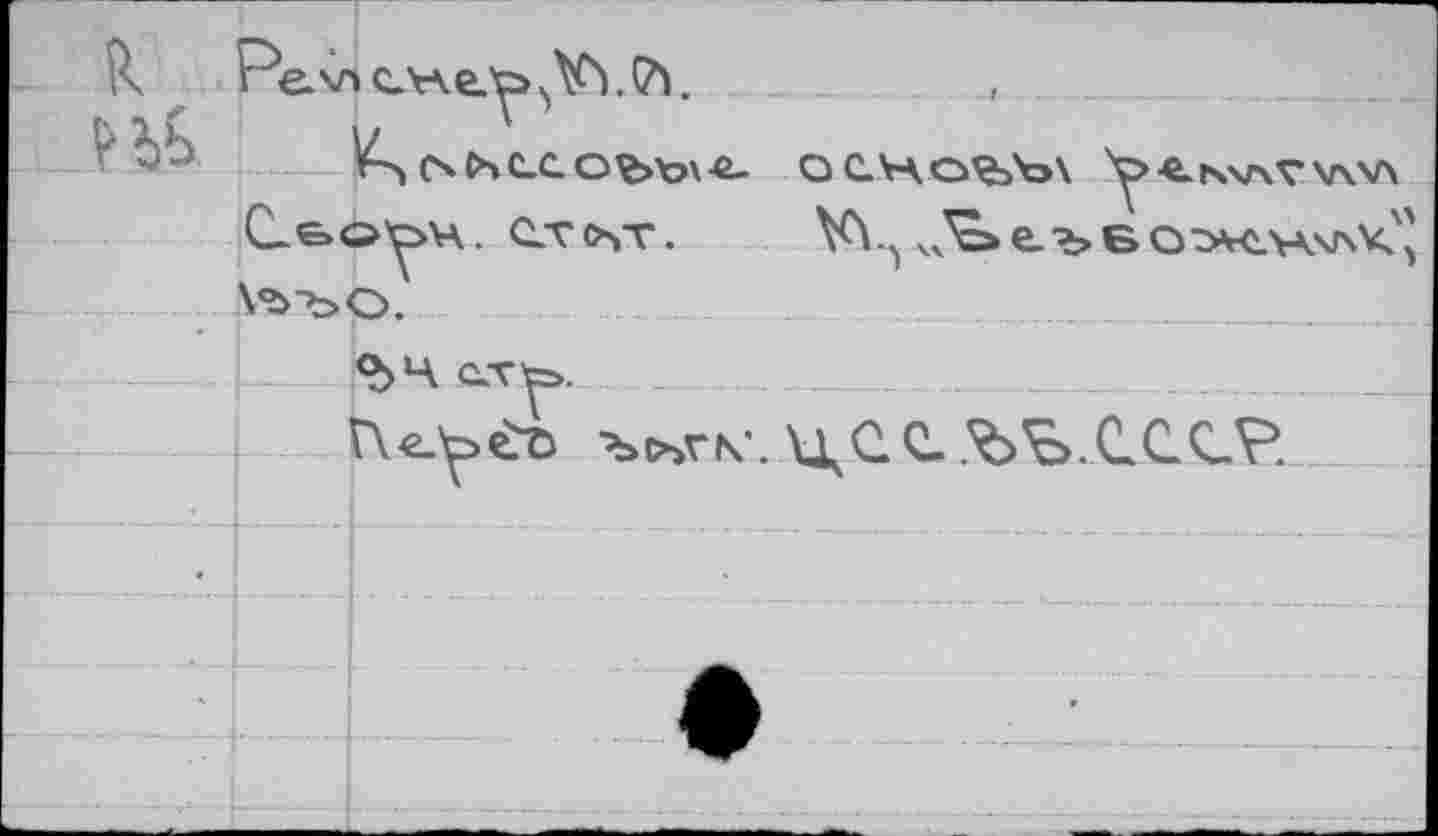 R Рейснер, М.А.
Р36 Классовые основы религии
Сборн. стат. М., „Безбожник",
1930.
34 стр.
Перед загл: ЦСС.ВБ.СССР.